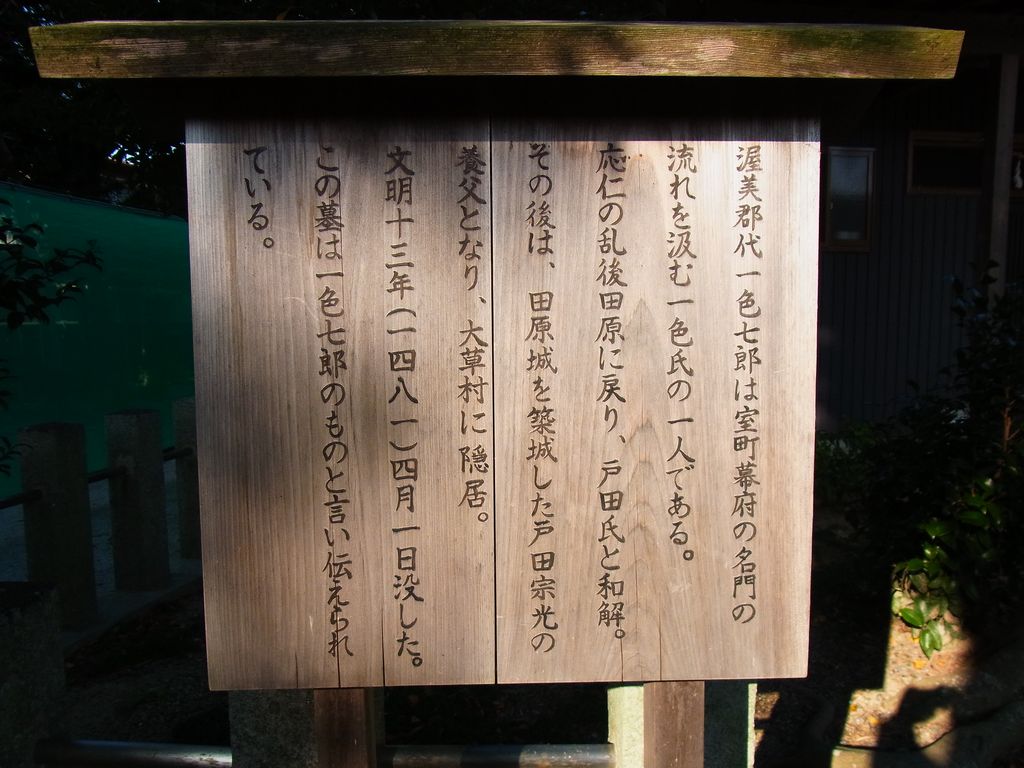 渥美郡代一色七郎は室町幕府の名門の
流れを汲む一色氏の一人である。
応仁の乱後田原に戻り、戸田氏と和解。
その後は、田原城を築城した戸田宗光の
養父となり、大草村に隠居。
文明十三年(一四八一)四月一日没した。
この墓は一色七郎のものと言い伝えられ
ている。